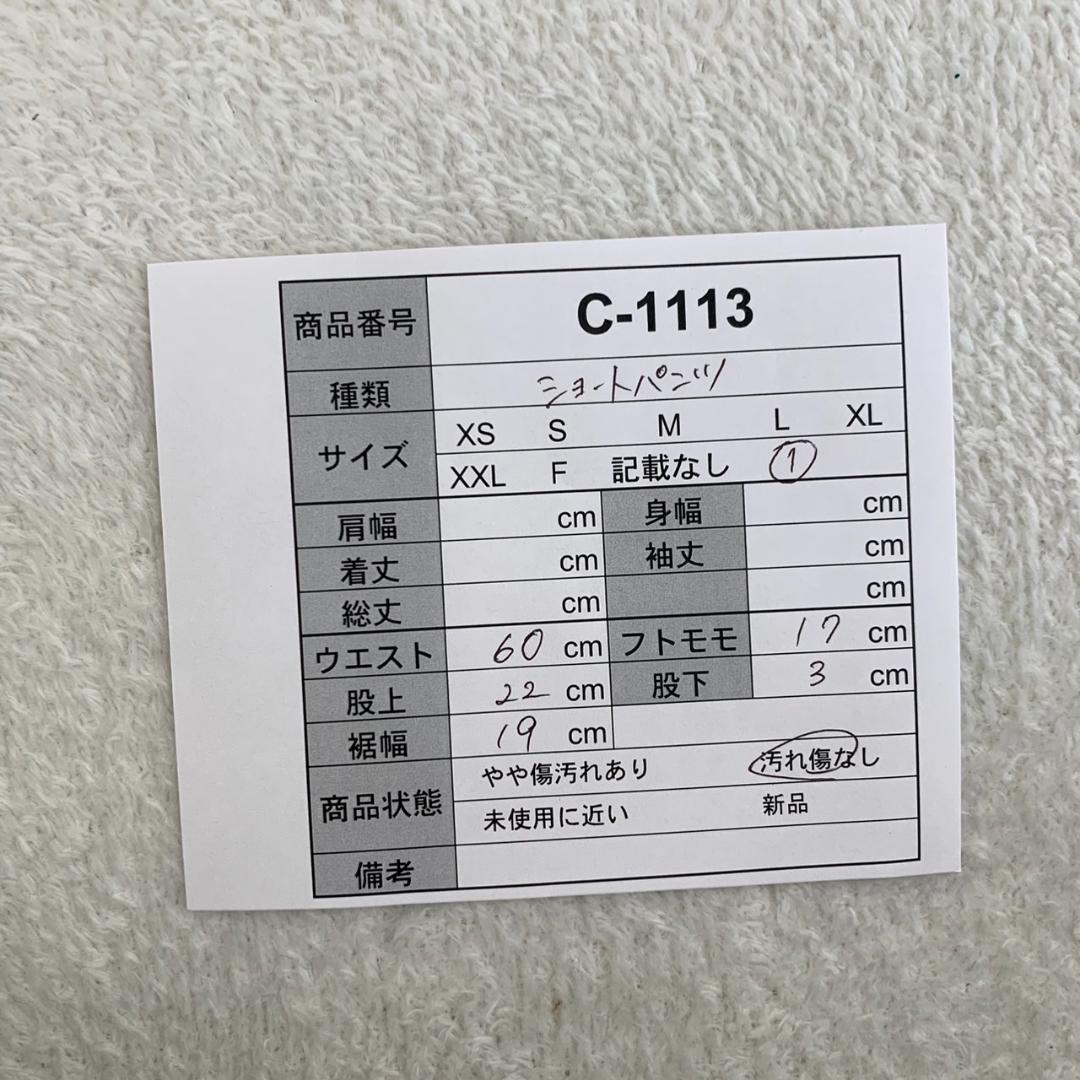 商品番号 C-1113
種類 ショートパンツ
サイズ XS S M L XL
XXL F 記載なし 1
肩幅 cm 身幅 cm
着丈 cm 袖丈 cm
総丈 cm cm
ウエスト 60 cm フトモモ 17 cm
股上 22 cm 股下 3 cm
裾幅 19 cm
商品状態 やや傷汚れあり 汚れ傷なし
未使用に近い 新品
備考